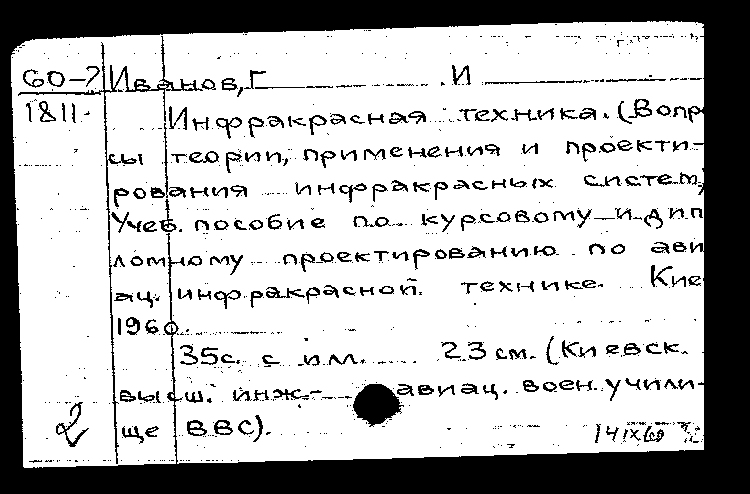 60-7 Иванов, Г И
1811.
Инфракрасная техника. (Вопро
сы теории, применения и проекти-
рования инфракрасных систем)
Учеб. пособие по курсовому и дип
ломному проектированию по ави
ац. инфракрасной технике. Кие
1960.
35с. с илл. 23 см. (Киевск.
высш. инж.- авиац. воен. учили-
ще ВВС).
2